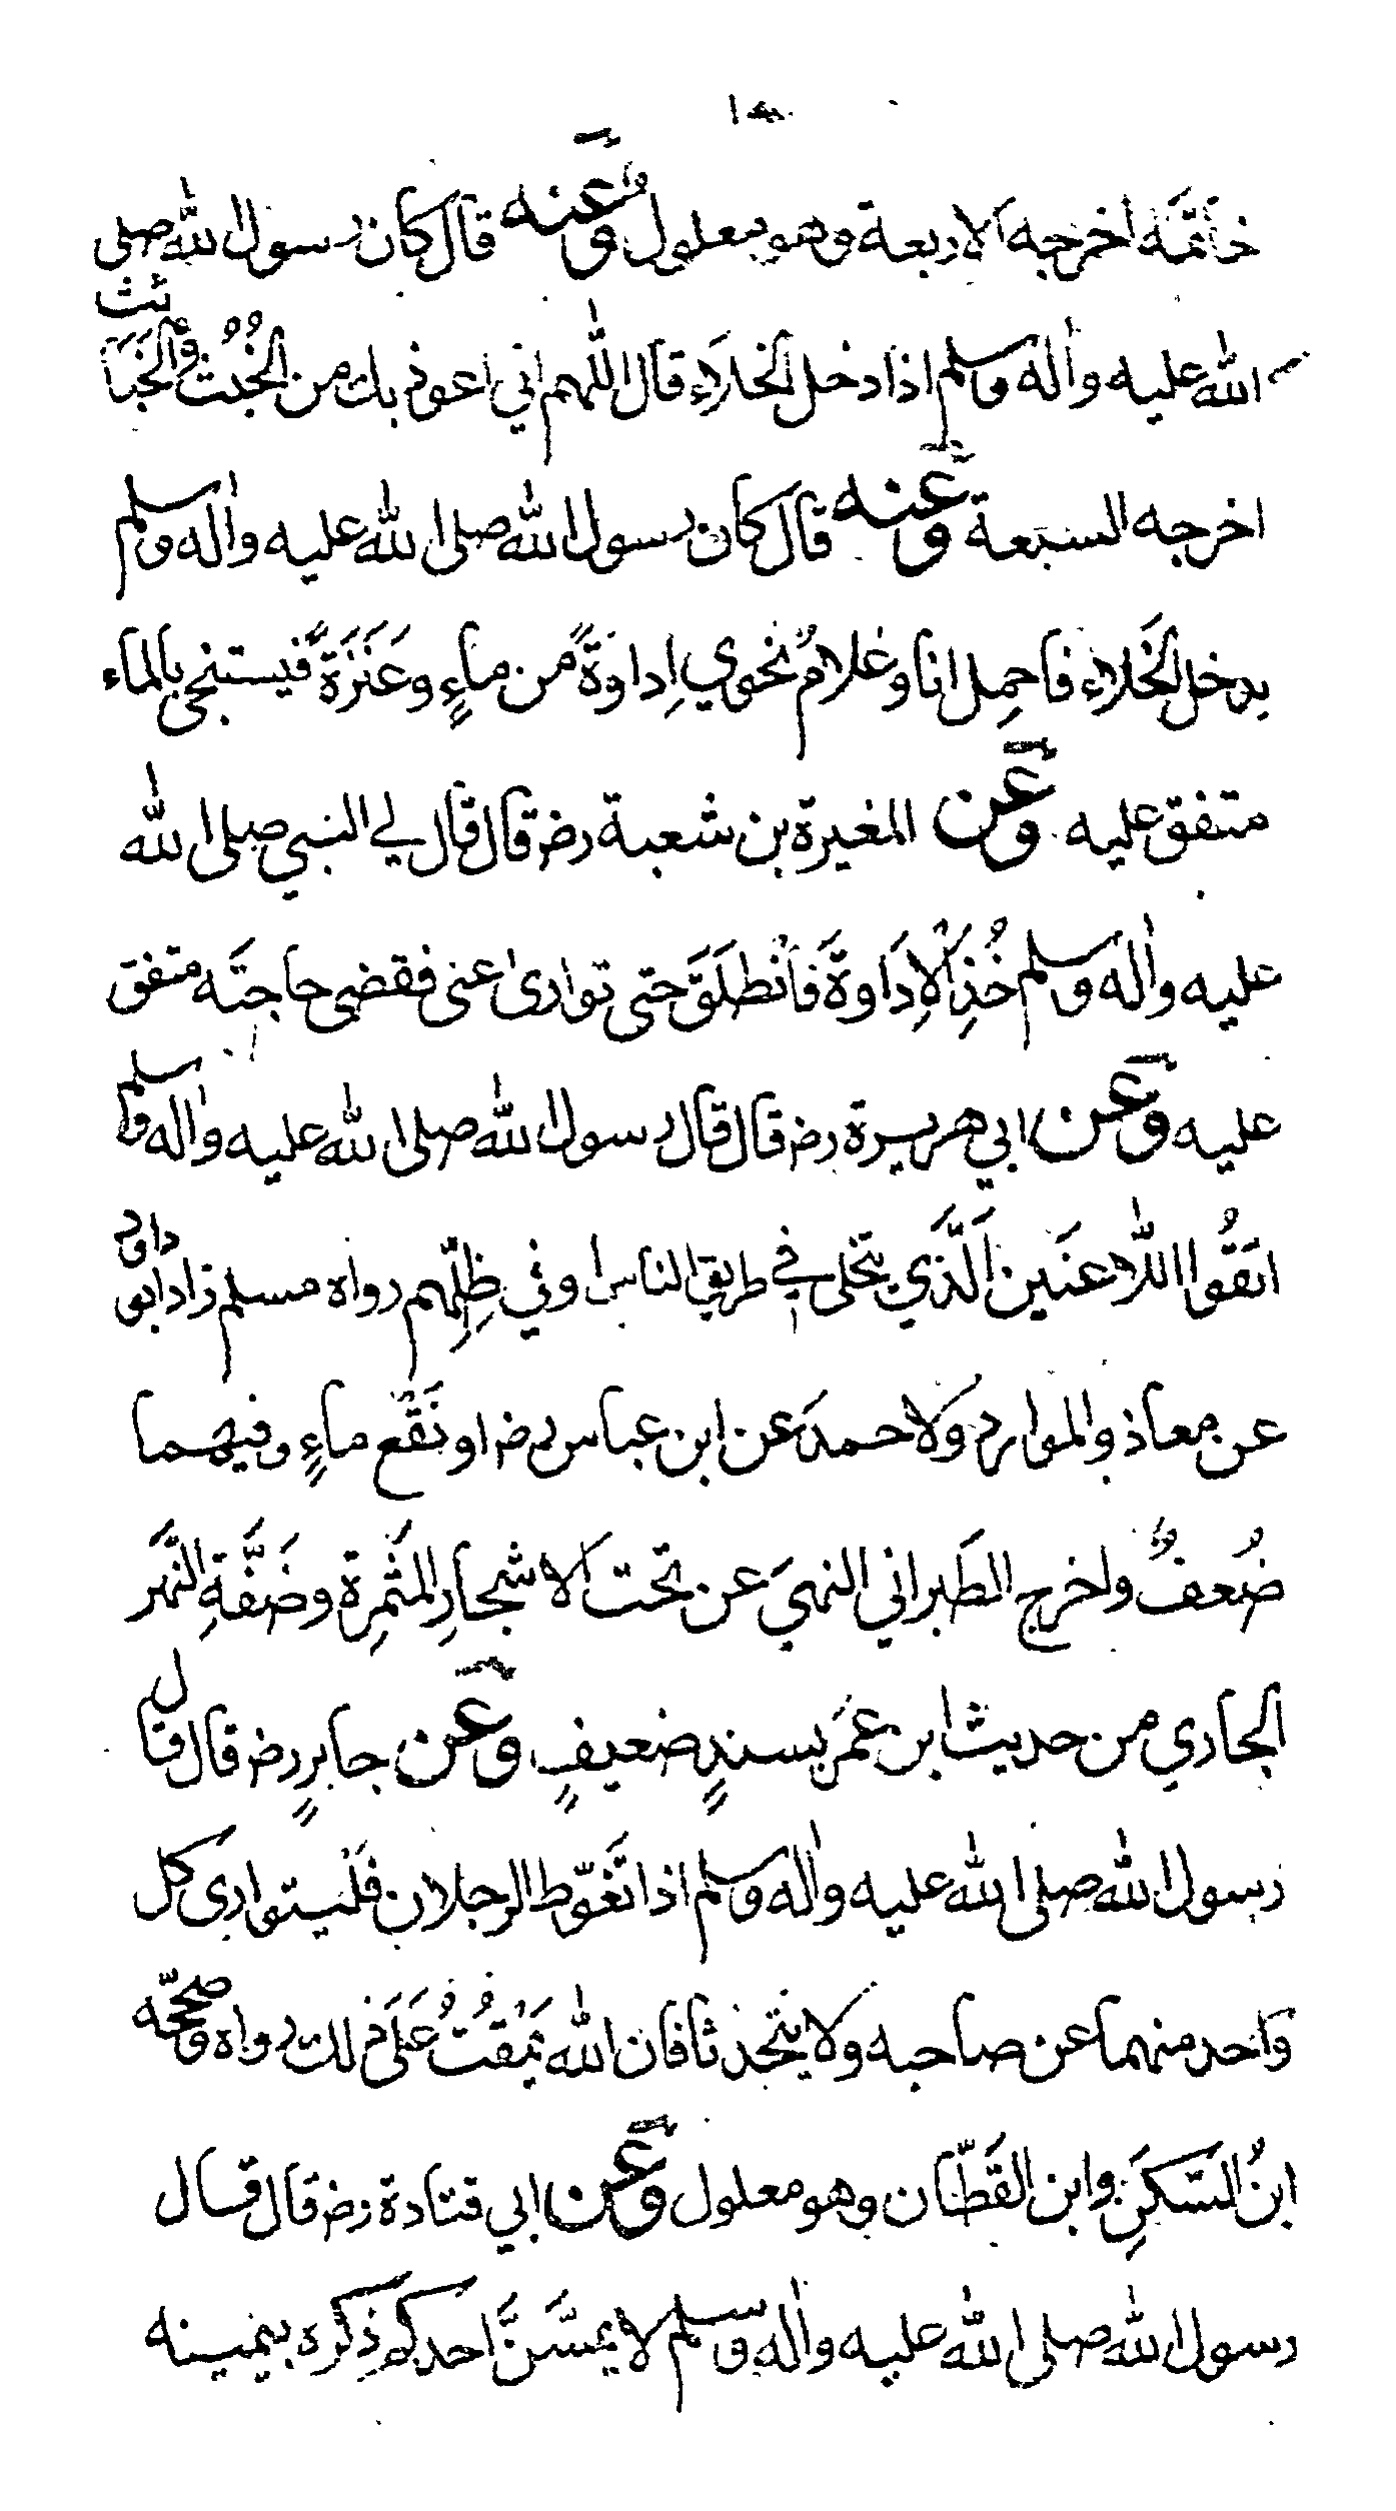 خاتمَه اخرجه الاربعة وهو معلول وعنه قال كان رسول الله صلى
الله عليه واٰله وسلم اذا دخل الخلاَء قال اللّٰهم اني اعوذ بك من الخُبُث والخَبَائث
اخرجه السبعة وعنه قال كان رسول الله صلى الله عليه واٰله وسلم
يدخل الخَلاء فاحمِل انا وغلامٌ نحوي اِداوَةً من ماءٍ وعَنَزَةً فيستنجى بالماء
متفق عليه وعن المغيرة بن شعبة رضـ قال قال لي النبي صلى الله
عليه واٰله وسلم خُذِ الْاِدَاوةَ فَانْطلَقَ حتى توارىٰ عنى فقضى حاجتَه متفق
عليه وعن ابي هريرة رضـ قال قال رسول الله صلى الله عليه واٰله وسلم
اتقُوا اللّاعنَين اَلَّذَي يتخلى في طريق الناس او في ظِلِّهم رواه مسلم زاد ابو داود
عن معاذ والموارد ولاحمدَ عن ابن عباس رضـ او نَقْع ماءٍ وفيهما
ضُعفٌ واخرج الطَبراني النهيَ عن تحت الاشجارِ المثَمِرة وضَفَّةِ النهَر
الجاري من حديث ابن عمَر بسندٍ ضعيفٍ وعن جابرٍ رضـ قال قال
رسول الله صلى الله عليه واٰله وسلم اذا تَغَوّط الرجلان فلْيتوارى كل
واحد منهما عن صاحبه ولا يتحَدثا فان الله يَمْقُتُ عَلَى ذلك رواه وصححّه
ابنُ السَّكَنِ وابن القَطّان وهو معلول وعن ابي قتادة رضـ قال قال
رسول الله صلى الله عليه واٰله وسلم لا يمسَّنَّ احدكم ذِكره بيمينه